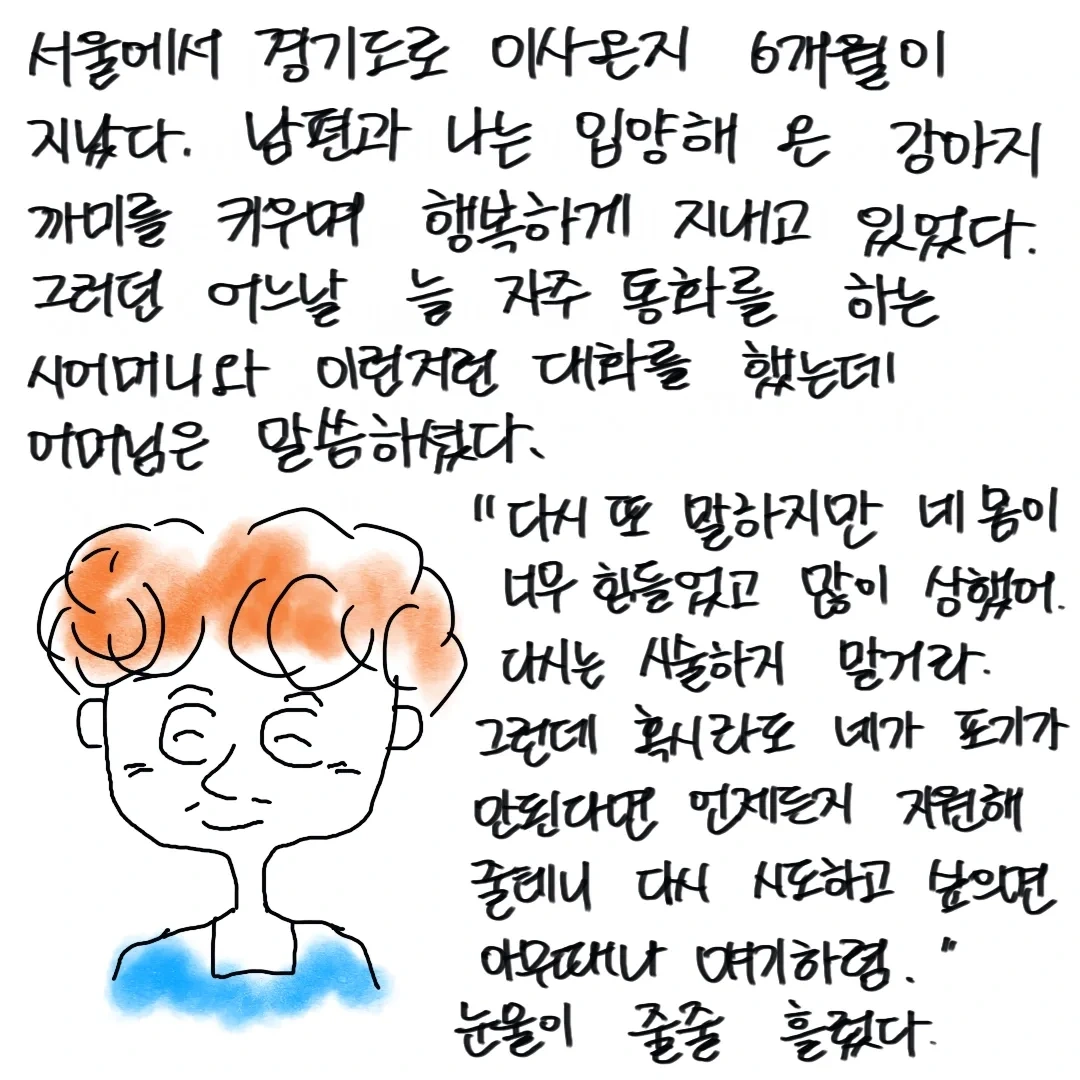 서울에서 경기도로 이사온지 6개월이
지났다. 남편과 나는 입양해 온 강아지
까미를 키우며 행복하게 지내고 있었다.
그러던 어느날 늘 자주 통화를 하는
시어머니와 이런저런 대화를 했는데
어머님은 말씀하셨다.
"다시 또 말하지만 네 몸이
너무 힘들었고 많이 상했어.
다시는 시술하지 말거라.
그런데 혹시라도 네가 포기가
안된다면 언제든지 지원해
줄테니 다시 시도하고 싶으면
아무때나 얘기하렴."
눈물이 줄줄 흘렀다.